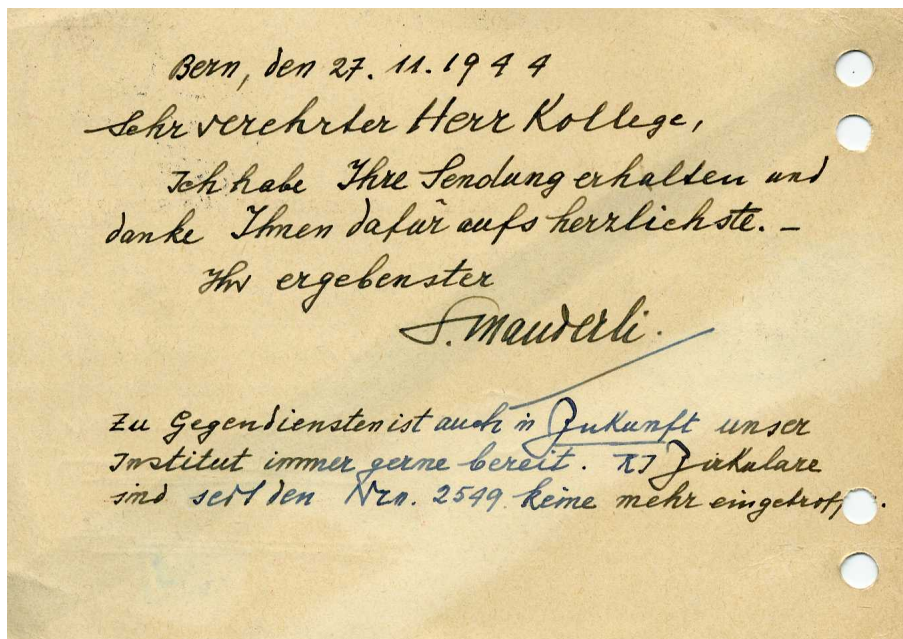 Bern, den 27. 11. 1944
Sehr verehrter Herr Kollege,
Ich habe Ihre Sendung erhalten und
danke Ihnen dafür aufs herzlichste. –
Ihr ergebenster
S. Mauderli.
Zu Gegendiensten ist auch in Zukunft unser
Institut immer gerne bereit. RI Zirkulare
sind seit den Nrn. 2549 keine mehr eingetroff